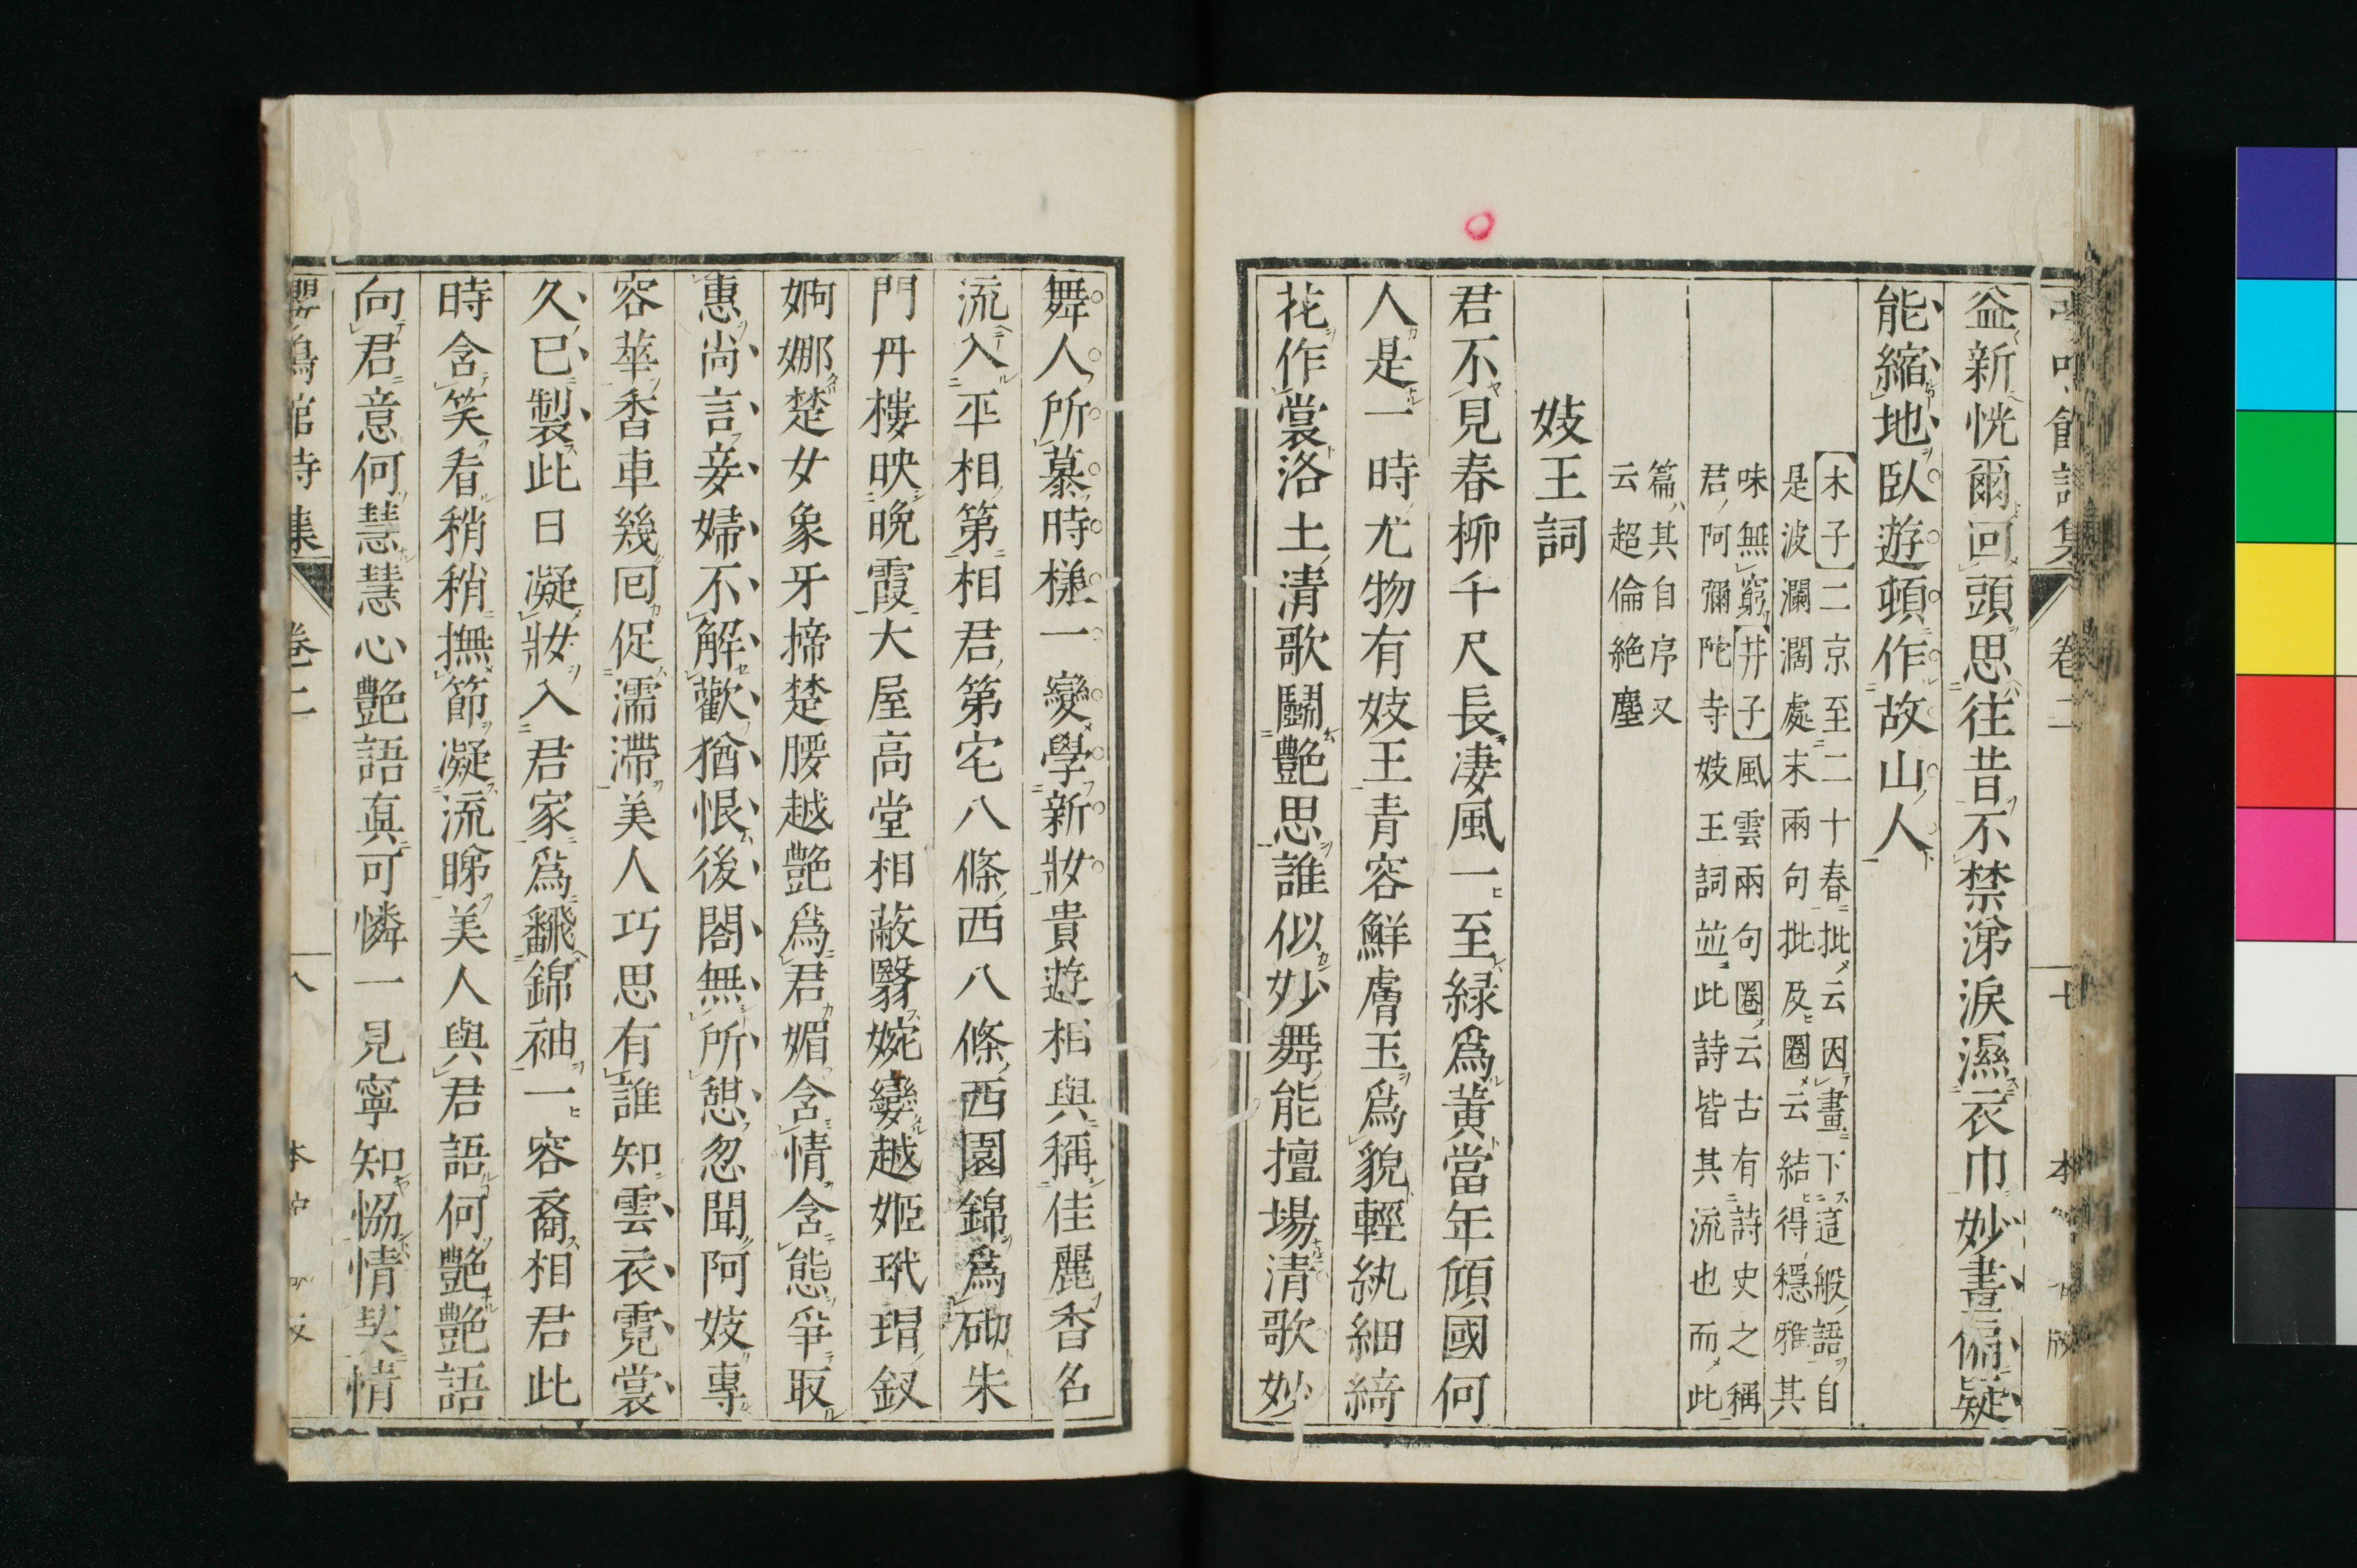 益新恍爾回頭思往昔不禁涕淚濕衣巾妙畫偏疑
能縮地臥遊頓作故山人
【木子】二京至二十春批云因畫下這般語自
是波瀾濶處末兩句批及圈云結得穩雅其
味無窮【井子】風雲兩句圈云古有詩史之稱
君阿彌陀寺妓王詞並此詩皆其流也而此
篇其自序又
云超倫絶塵
妓王詞
君不見春柳千尺長淒風一至緑爲黄當年傾國何
人是一時尤物有妓王青容鮮膚玉爲貌輕紈細綺
花作裳洛土清歌鬭艷思誰似妙舞能擅場清歌妙
舞人所慕時樣一變學新妝貴遊相與稱佳麗香名
流入平相第相君第宅八條西八條西園錦爲砌朱
門丹樓映晩霞大屋高堂相蔽翳婉孌越姬玳瑁釵
婀娜楚女象牙揥楚腰越艷爲君媚含情含態爭取
惠尚言妾婦不解歡猶恨後閤無所憇忽聞阿妓專
容華香車幾回促濡滯美人巧思有誰知雲衣霓裳
久已製此日凝妝入君家爲飜錦袖一容裔相君此
時含笑看稍稍撫節凝流睇美人與君語何艷艷語
向君意何慧慧心艷語眞可憐一見寧知惱情契情
嚶鳴館詩集 卷二 八